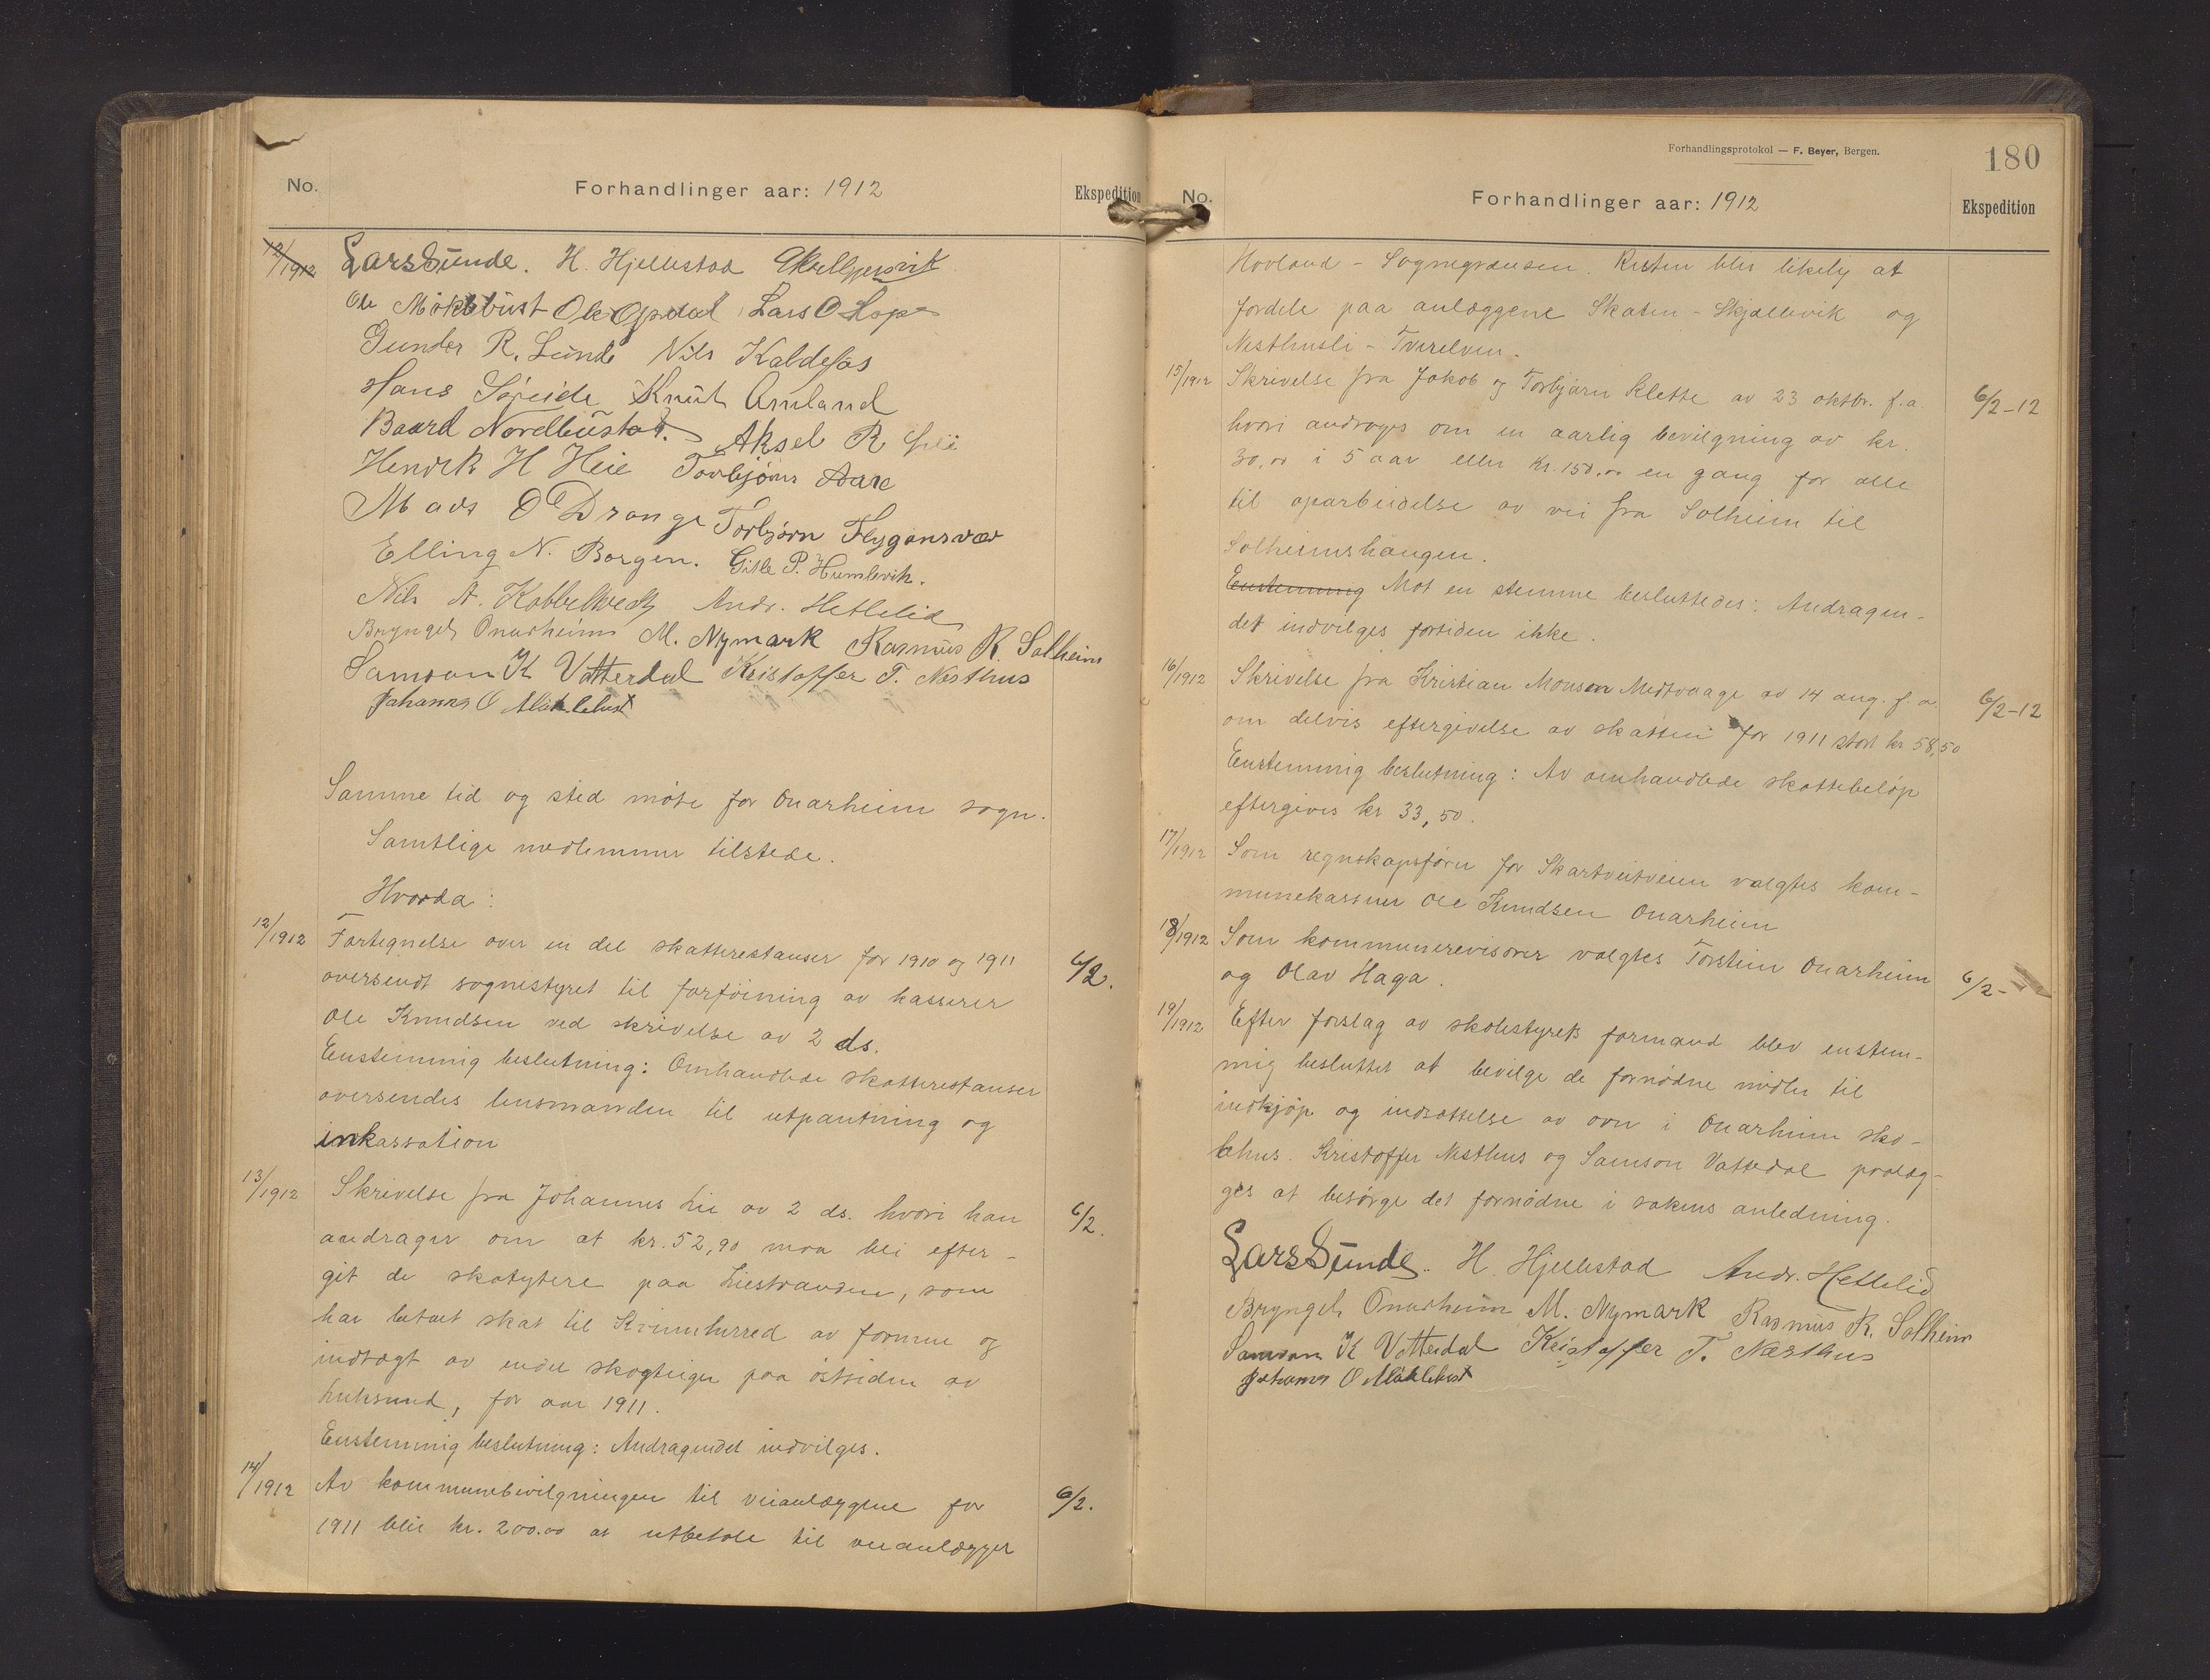 No.
Forhandlinger aar: 1912
Ekspedition
12/1912
Lars Sunde. H. Hjellestad
Ole Møklebust Ole Opdal Lars O Lope
Gunder R. Lunde Nils Kaldefos
Hans Søreide Knut Amland
Baard Nordbustad. Aksel R
Henrik H Heie Torbjørn Aare
Mads O Drange Torbjørn Flygansvær
Elling N. Borgen. Gitle P. Humlevik.
Nils A. Kobbeltvedt Andr. Hetlelid
Bryngel Onarheim M. Nymark Rasmus R. Solheim
Samson K Vatterdal Kristoffer T. Nesthus
Johannes O Møklebust
Samme tid og sted møte for Onarheim sogn.
Samtlige medlemmer tilstede.
Hvorda:
12/1912
Fortegnelse over en del skatterestanser for 1910 og 1911
oversendt sognestyret til forføining av kasserer
Ole Knudsen ved skrivelse av 2 ds.
6/2.
Enstemmig beslutning: Omhandlede skatterestanser
oversendes lensmanden til utpantning og
inkassation
13/1912
Skrivelse fra Johannes Lie av 2 ds. hvori han
andrager om at kr. 52,90 maa bli efter-
6/2.
git de skatytere paa Liestranden, som
har betalt skat til Kvinnherred av formue og
indtægt av endel skogteiger paa østsiden av
Luksund, for aar 1911.
Enstemmig beslutning: Andragendet indvilges.
14/1912
Av kommunebevilgningen til veianlæggene for
1911 blir kr. 200.00 at utbetale til veianlægget
6/2.
Forhandlingsprotokol — F. Beyer, Bergen.
180
No.
Forhandlinger aar: 1912
Ekspedition
Hovland - Sognegrænsen. Resten blir likelig at
fordele paa anlæggene Skaten - Skjællevik og
Nesthusli - Tverelven.
15/1912
Skrivelse fra Jakob og Torbjørn Klette av 23 oktbr. f.a.
6/2-12
hvori androges om en aarlig bevilgning av kr.
30,00 i 5 aar eller kr. 150.00 en gang for alle
til oparbeidelse av vei fra Solheim til
Solheimshaugen.
Enstemmig Mot en stemme besluttedes: Andragen-
det indvilges fortiden ikke.
16/1912
Skrivelse fra Kristian Monsen Medtvaage av 14 aug. f. a.
6/2-12
om delvis eftergivelse av skatten for 1911 stort kr 58,50
Enstemmig beslutning: Av omhandlede skattebeløp
eftergives kr 33,50.
17/1912
Som regnskapsfører for Skartveitveien valgtes kom-
munekasserer Ole Knudsen Onarheim
18/1912
Som kommunerevisorer valgtes Torstein Onarheim
og Olav Haga.
6/2-
19/1912
Efter forslag av skolestyrets formand blev enstem-
mig besluttet at bevilge de fornødne midler til
indkjøp og indsættelse av ovn i Onarheim sko-
lehus. Kristoffer Nesthus og Samson Vattedal paalæg-
ges at besørge det fornødne i sakens anledning.
Lars Sunde. H. Hjellestad Andr. Hetlelid
Bryngel Onarheim M. Nymark Rasmus R. Solheim
Samson K Vatterdal Kristoffer T. Næsthus
Johannes O Møklebust